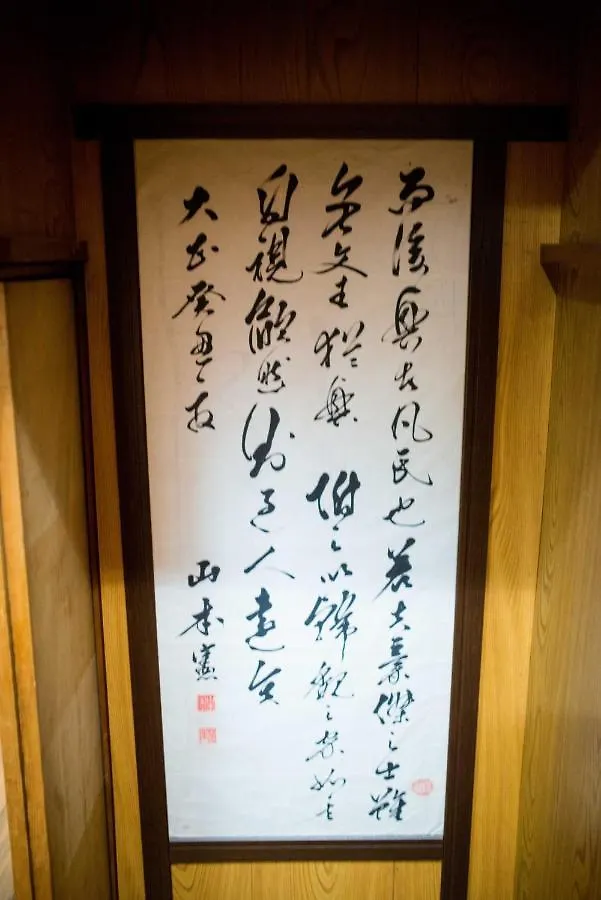 而後興者凡民也若夫豪傑之士雖
無文王猶興 附之以韓魏之家如其
自視欿然則過人遠矣
大正癸丑
山本憲